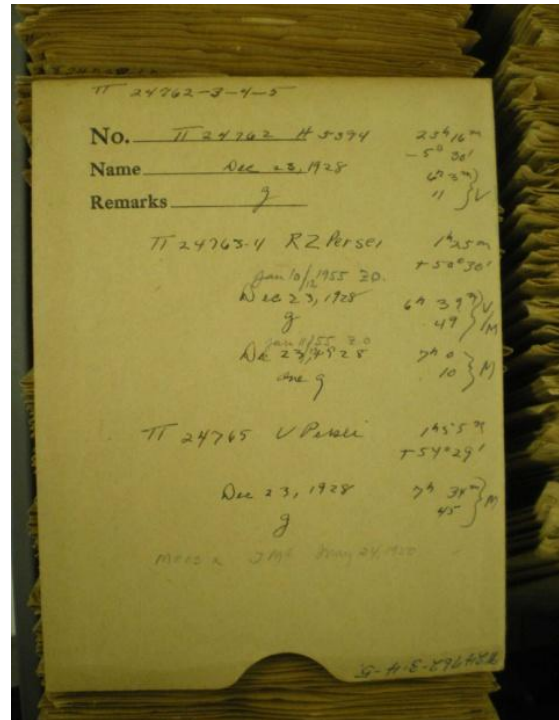 π 24762-3-4-5
No. π 24762 H 5394 23ʰ 16ᵐ
-5° 30'
Name Dec 23, 1928 6ʰ 3ᵐ
Remarks g 11 } V
π 24763-4 RZ Persei 1ʰ 25ᵐ
+50° 30'
Jan 10/12 1955 Z.O.
Dec 23, 1928 6ʰ 39ᵐ } V
g 49 } M
Jan 11/55 Z.O
Dec 23, 1928 7ʰ 0
one g 10 } M
π 24765 V Persei 1ʰ 55ᵐ
+54° 29'
Dec 23, 1928 7ʰ 34ᵐ
g 45 } M
May 24, 1950
π24762-3-4-5